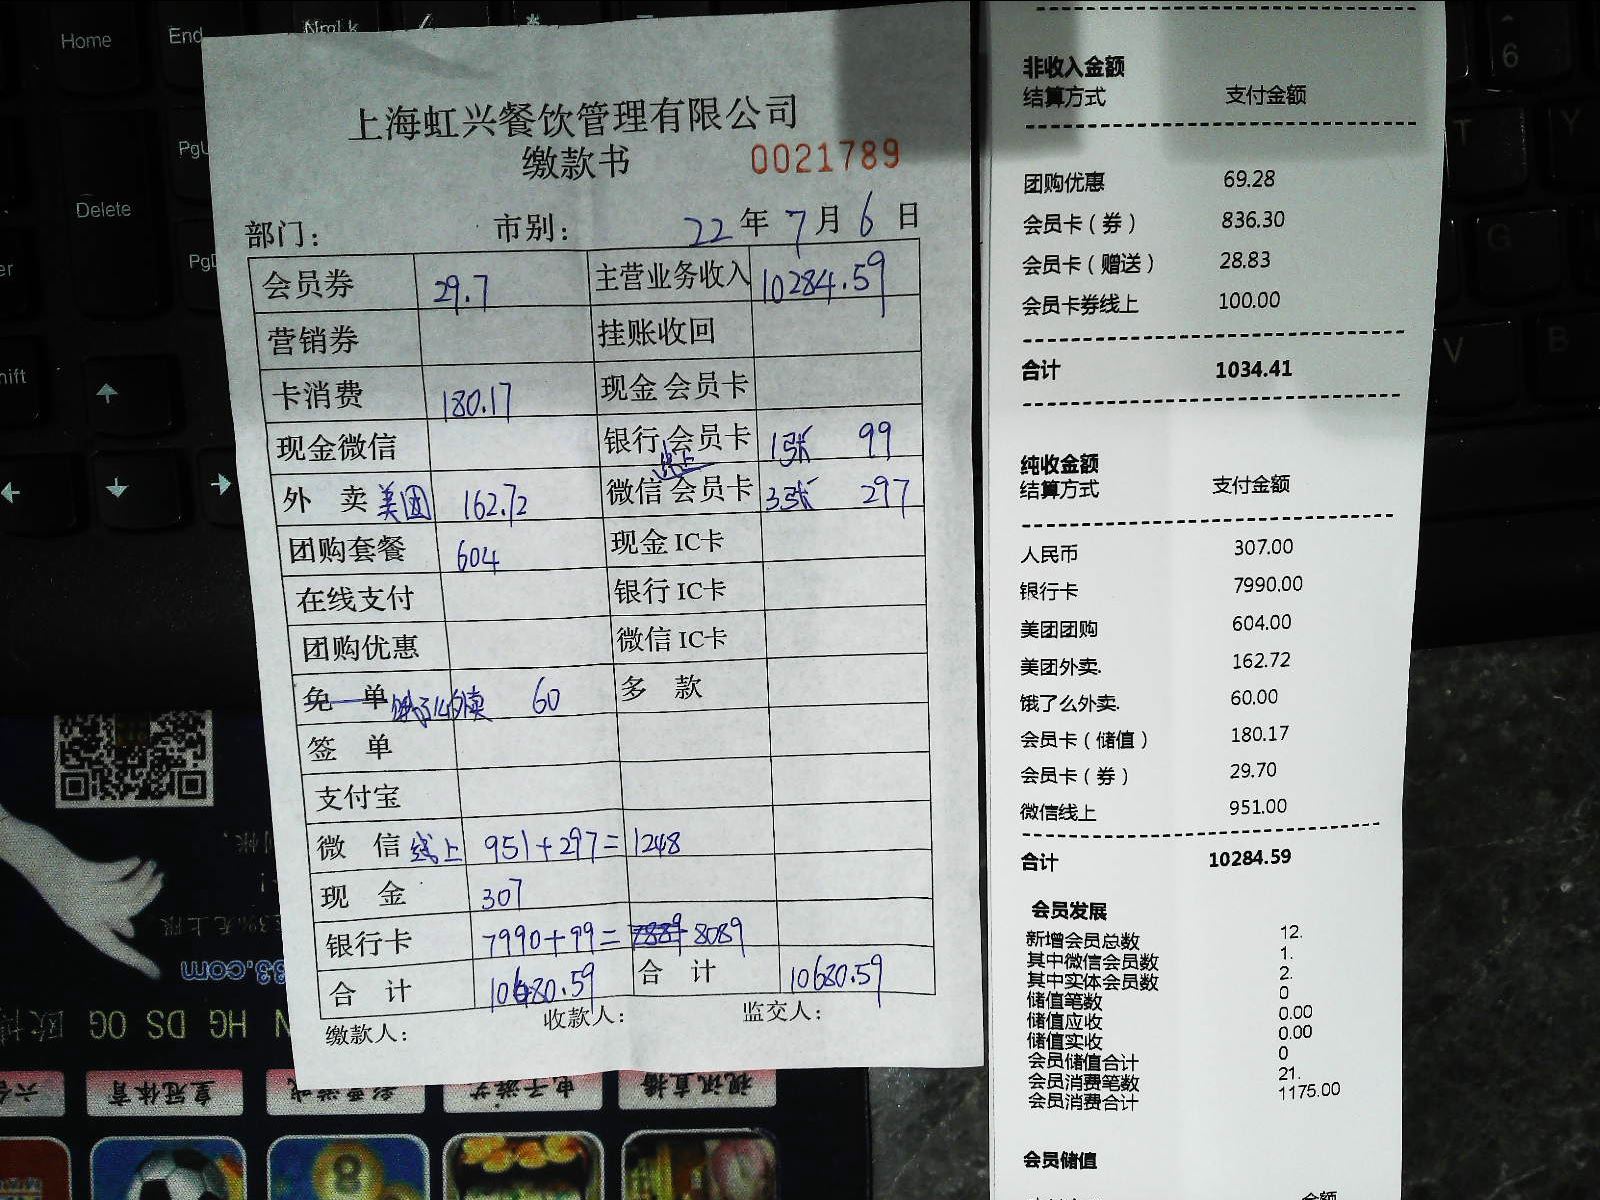 Home
End
NrmLk
Delete
上海虹兴餐饮管理有限公司
缴款书
0021789
部门：
市别：
22 年 7 月 6 日
会员券 29.7 主营业务收入 10284.59
营销券 挂账收回
卡消费 180.17 现金 会员卡
现金微信 银行 会员卡 1张 99
外 卖 美团 162.72 微信 线上 会员卡 3张 297
团购套餐 604 现金 IC卡
在线支付 银行 IC卡
团购优惠 微信 IC卡
免 单 饿了么外卖 60 多 款
签 单
支付宝
微 信 线上 951+297= 1248
现 金 307
银行卡 7990+99= 8089
合 计 10680.59 合 计 10680.59
缴款人：
收款人：
监交人：
非收入金额
结算方式 支付金额
团购优惠 69.28
会员卡（券） 836.30
会员卡（赠送） 28.83
会员卡券线上 100.00
合计 1034.41
纯收金额
结算方式 支付金额
人民币 307.00
银行卡 7990.00
美团团购 604.00
美团外卖. 162.72
饿了么外卖. 60.00
会员卡（储值） 180.17
会员卡（券） 29.70
微信线上 951.00
合计 10284.59
会员发展
新增会员总数 12.
其中微信会员数 1.
其中实体会员数 2.
储值笔数 0
储值应收 0.00
储值实收 0.00
会员储值合计 0
会员消费笔数 21.
会员消费合计 1175.00
会员储值
6
T
Y
G
V
B
OG DS HG
皇冠体育
电子游艺
视讯直播